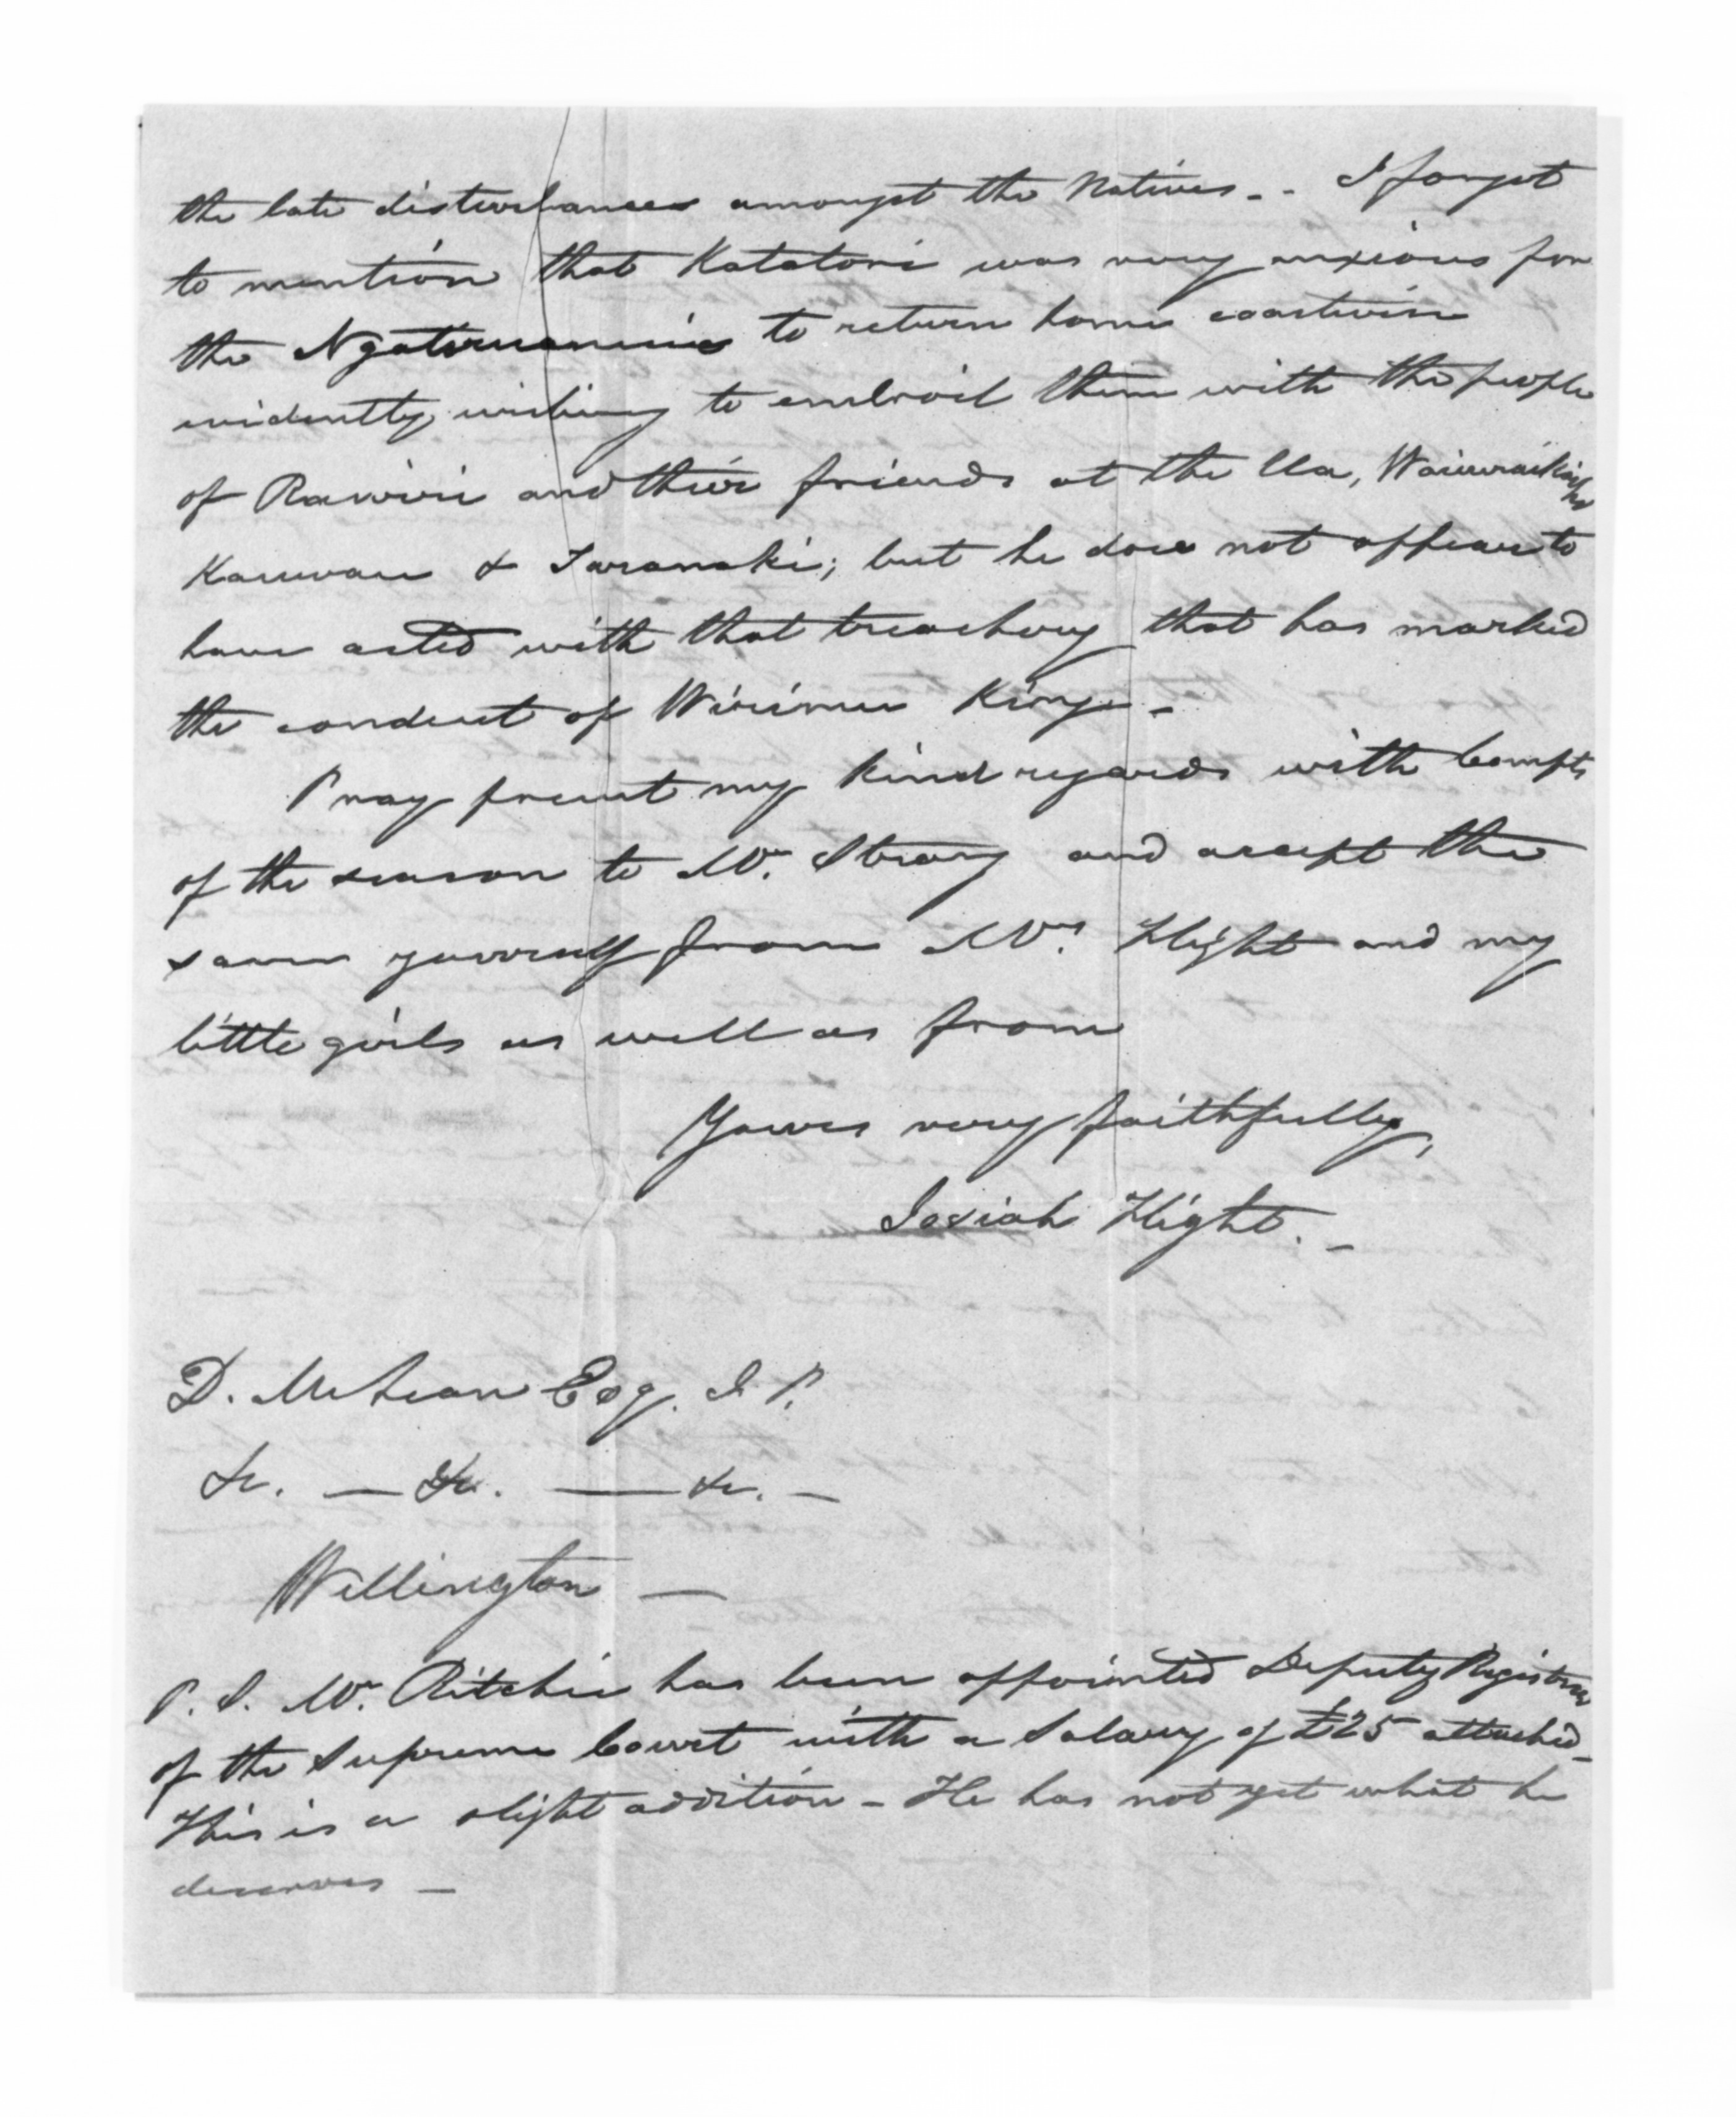 the late disturbances amongst the Natives - - I forgot
to mention that Katatori was very anxious for
the Ngatiruanuis to return home coastwise
evidently wishing to embroil them with the people
of Rawiri and their friends at the Ua, Waiwaikaiho
Kauwau & Taranaki; but he does not appear to
have acted with that treachery that has marked
the conduct of Wirimu King. -
Pray present my kind regards with Compts
of the season to Mr. Strang and accept the
same yourself from Mrs. Flight and my
little girls as well as from
Yours very faithfully,
Josiah Flight. -
D. McLean Esq. J. P.
&c. — &c. — &c. -
Wellington —
P. S. Mr. Ritchie has been appointed Deputy Registrar
of the Supreme Court with a Salary of £25 attached -
This is a slight addition - He has not yet what he
deserves -